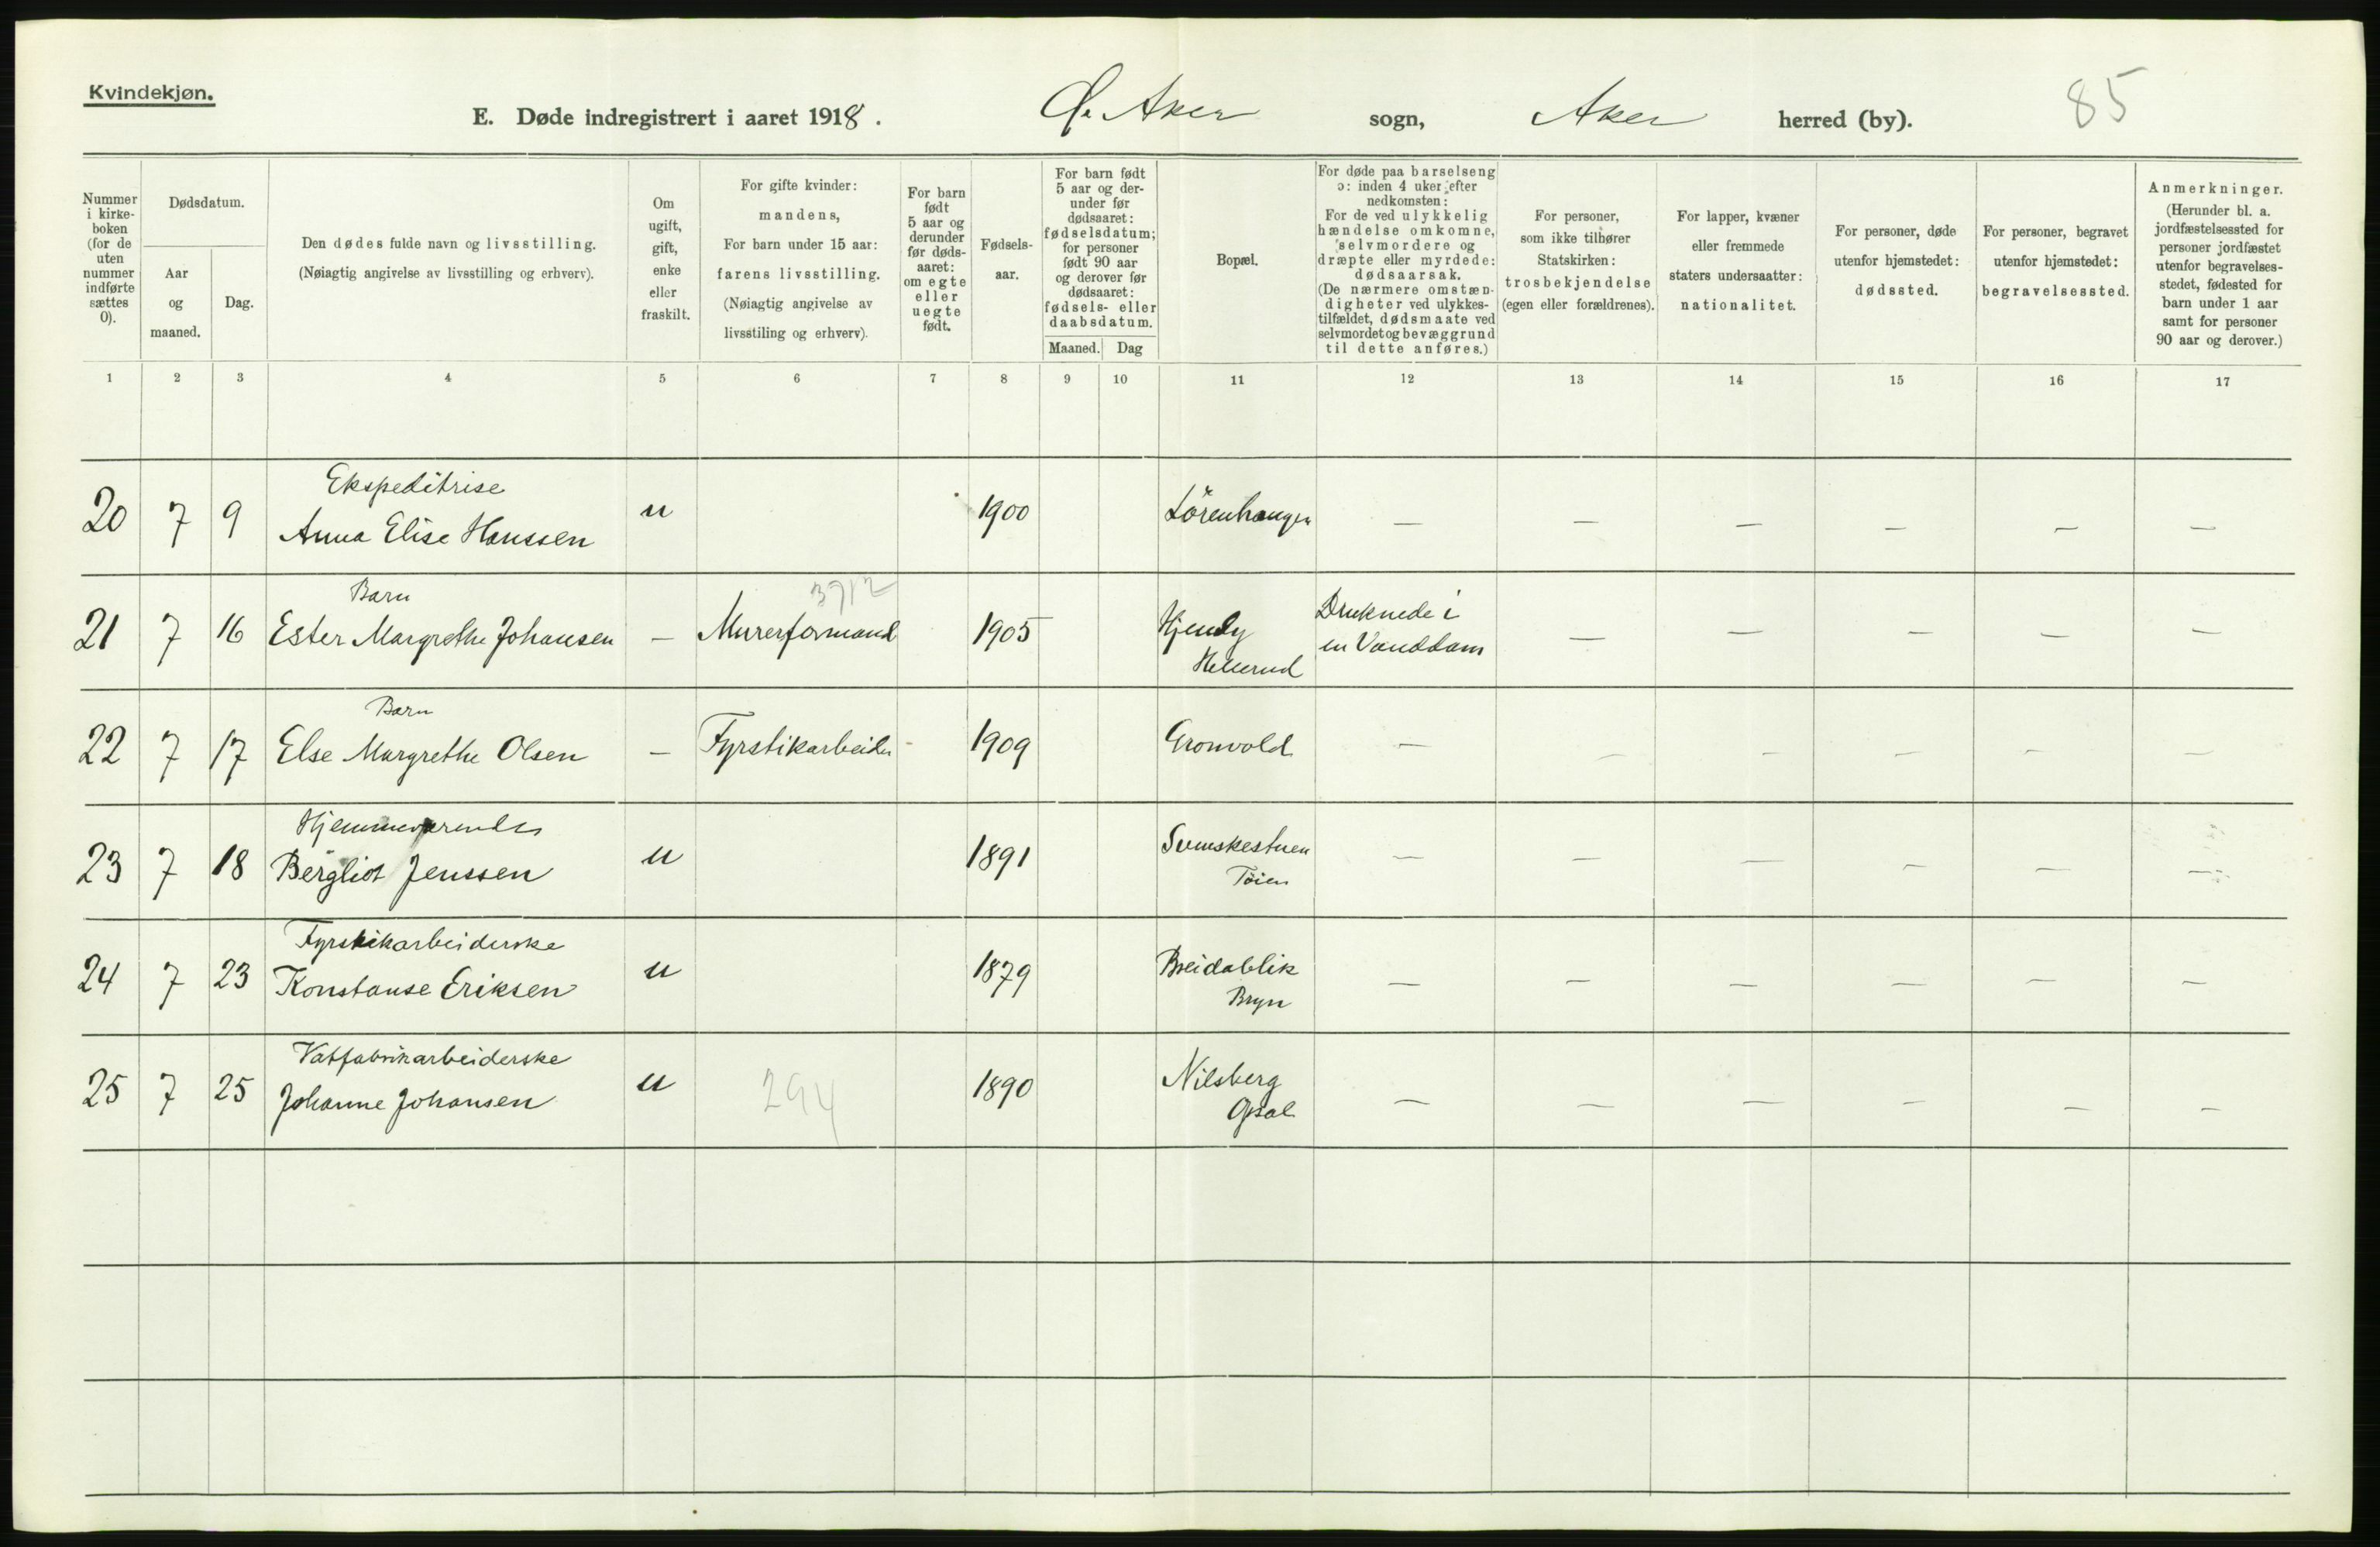 Kvindekjøn.
E. Døde indregistrert i aaret 1918. Ø. Aker sogn, Aker herred (by). 85
Nummer i kirke-boken (for de uten nummer indførte sættes 0).
Dødsdatum.
Aar og maaned.
Dag.
Den dødes fulde navn og livsstilling.
(Nøiagtig angivelse av livsstilling og erhverv).
Om ugift, gift, enke eller fraskilt.
For gifte kvinder: mandens,
For barn under 15 aar: farens livsstilling.
(Nøiagtig angivelse av livsstiling og erhverv).
For barn født 5 aar og derunder før døds-aaret: om egte eller uegte født.
Fødsels-aar.
For barn født 5 aar og der-under før dødsaaret: fødselsdatum; for personer født 90 aar og derover før dødsaaret: fødsels- eller daabsdatum.
Maaned. Dag
Bopæl.
For døde paa barselseng ɔ: inden 4 uker efter nedkomsten:
For de ved ulykkelig hændelse omkomne, selvmordere og dræpte eller myrdede: dødsaarsak.
(De nærmere omstæn-digheter ved ulykkes-tilfældet, dødsmaate ved selvmordet og bevæggrund til dette anføres.)
For personer, som ikke tilhører Statskirken: trosbekjendelse (egen eller forældrenes).
For lapper, kvæner eller fremmede staters undersaatter: nationalitet.
For personer, døde utenfor hjemstedet: dødssted.
For personer, begravet utenfor hjemstedet: begravelsessted.
Anmerkninger.
(Herunder bl. a. jordfæstelsessted for personer jordfæstet utenfor begravelses-stedet, fødested for barn under 1 aar samt for personer 90 aar og derover.)
1 2 3 4 5 6 7 8 9 10 11 12 13 14 15 16 17
Ekspeditrise
20 7 9 Anna Elise Hanssen u 1900 Lörenhaugen — — — — — —
Barn 3712
21 7 16 Ester Margrethe Johansen — Murerformand 1905 Hjemly Hellerud Druknede i en Vanddam — — — — —
Barn
22 7 17 Else Margrethe Olsen — Fyrstikarbeider - 1909 Gronvold — — — — — —
Hjemmeværende
23 7 18 Bergliot Jenssen u 1891 Svenskestuen Töien — — — — — —
Fyrstikarbeiderske
24 7 23 Konstanse Eriksen u 1879 Breidablik Bryn — — — — — —
Vatfabrikarbeiderske
25 7 25 Johanne Johansen u 294 1890 Nilsberg Opsal — — — — — —